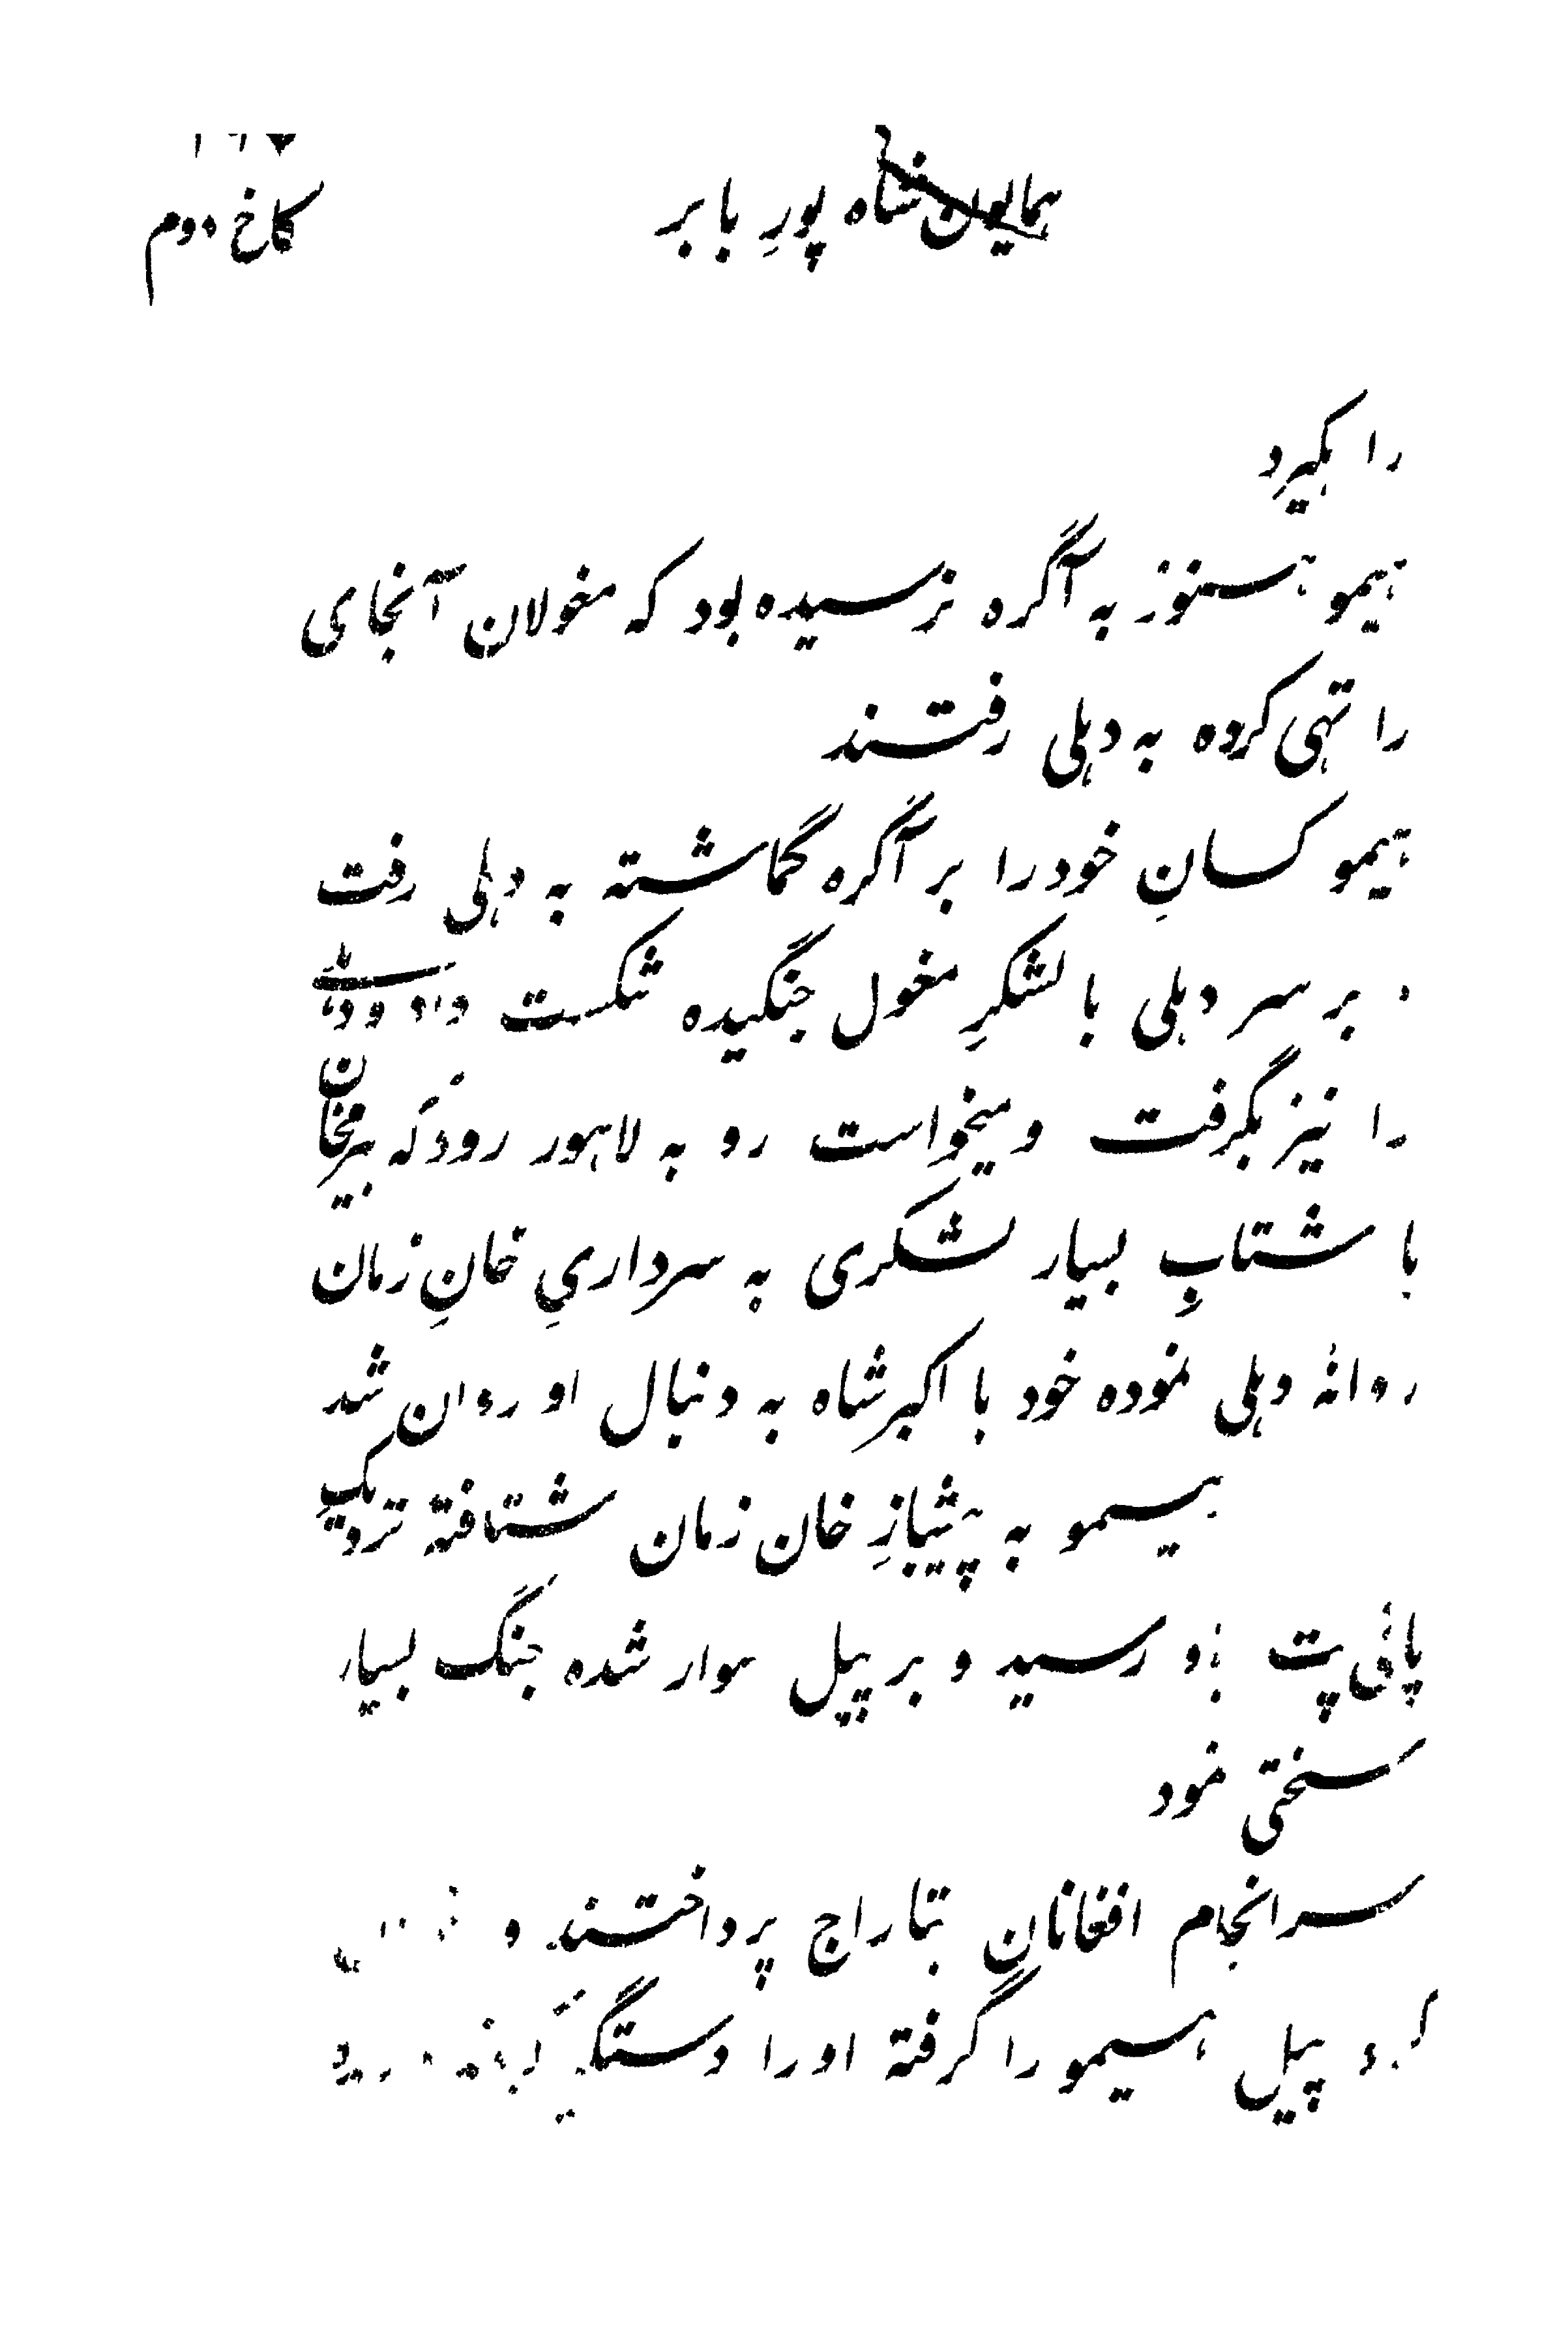 همایون شاه پورِ بابر
کاخ دوم
را بگیرد
هیمو هنوز به آگره نرسیده بود که مغولان آنجای
را تهی کرده به دهلی رفتند
هیمو کسانِ خود را بر آگره گماشته به دهلی رفت
و بر سر دهلی با لشکرِ مغول جنگیده شکست داد و دهلی
را نیز بگرفت و میخواست رو به لاهور رود که بیرمخان
با شتابِ بسیار لشکری به سرداریِ خانِ زمان
روانهٔ دهلی نموده خود با اکبرشاه به دنبال او روان شد
هیمو به پیشبازِ خان زمان شتافته نزدیکِ
پانی پت باو رسید و بر پیل سوار شده جنگ بسیار
سختی نمود
سرانجام افغانان بتاراج پرداختند و
پیل هیمو را گرفته او را دستگیر